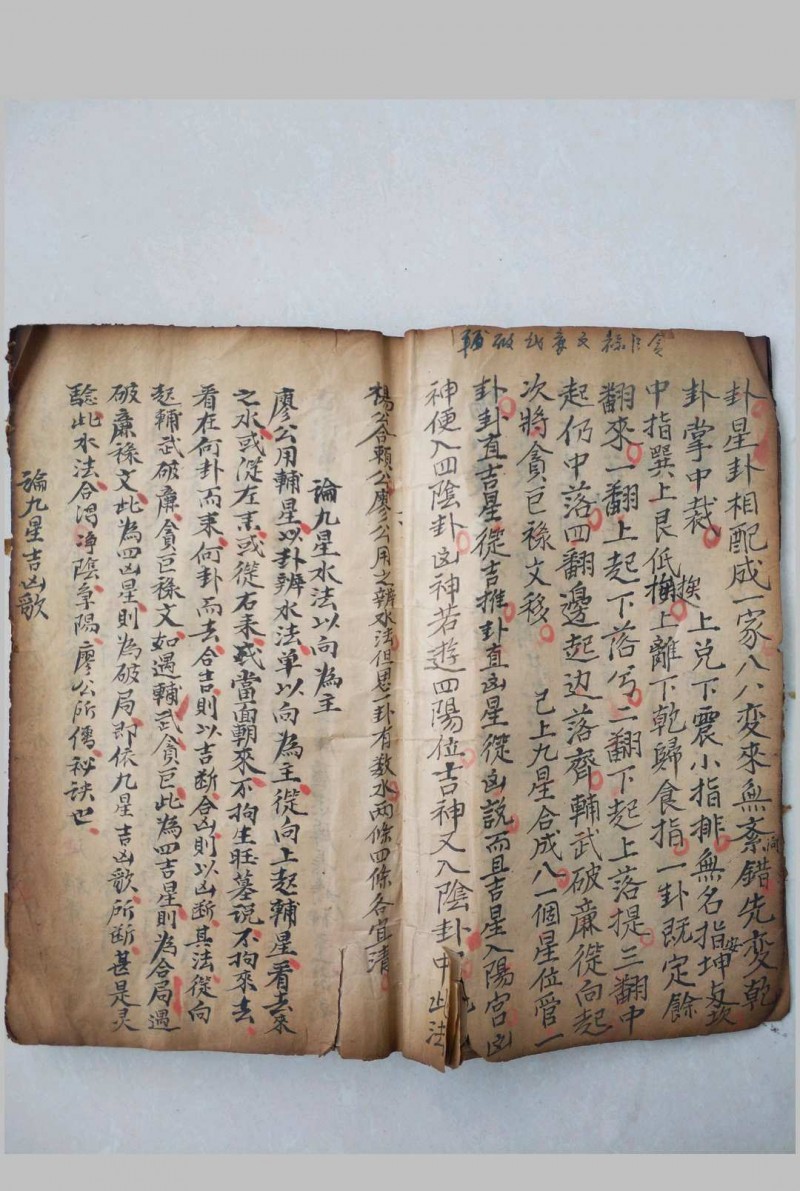 貪巨祿文廉武破輔
卦星卦相配成一家八八变來無紊錯先变乾
卦掌中裁 上兌下震小指排無名指坤与坎
挨
向
安
中指巽上艮低 上離下乾歸食指一卦既定餘
翻來一翻上起下落 二翻下起上落提三翻中
起仍中落四翻邊起边落齊輔武破廉從向起
次將貪巨祿文移 已上九星合成八一個星位管一
卦卦直吉星從吉推卦直凶星從凶說而且吉星入陽宮凶
神便入四陰卦凶神若遊四陽位吉神又入陰卦中此法
楊公答賴公廖公用之辨水法但思一卦有数水兩條四條各宜清
論九星水法以向為主
廖公用輔星以卦辨水法单以向為主從向上起輔星看去來
之水或從左來或從右來或當面朝來不拘生旺墓說不拘來去
看在何卦而來何卦而去合吉則以吉断合凶則以凶断其法從向
起輔武破廉貪巨祿文如遇輔武貪巨此為四吉星則為合局遇
破廉祿文此為四凶星則為破局即依九星吉凶歌所断甚是灵
驗此水法合得净陰净陽廖公所傳秘訣也
論九星吉凶歌